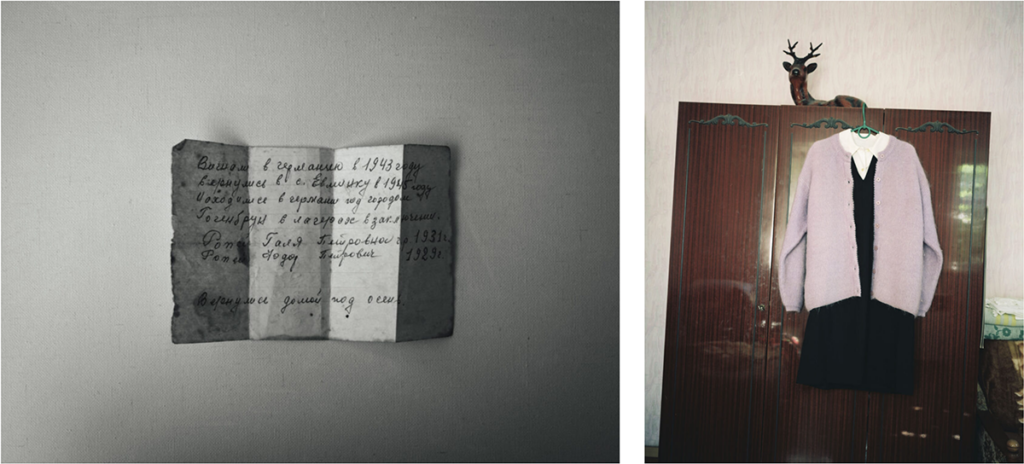 в германию в 1943 году
вернулись в с. Евминку в 1945 году
Находились в германии под городом
Гогенбрун в лагерях в заключении.
Галя Петровна 1931г.
Петрович 1929г.
Вернулись домой под осень